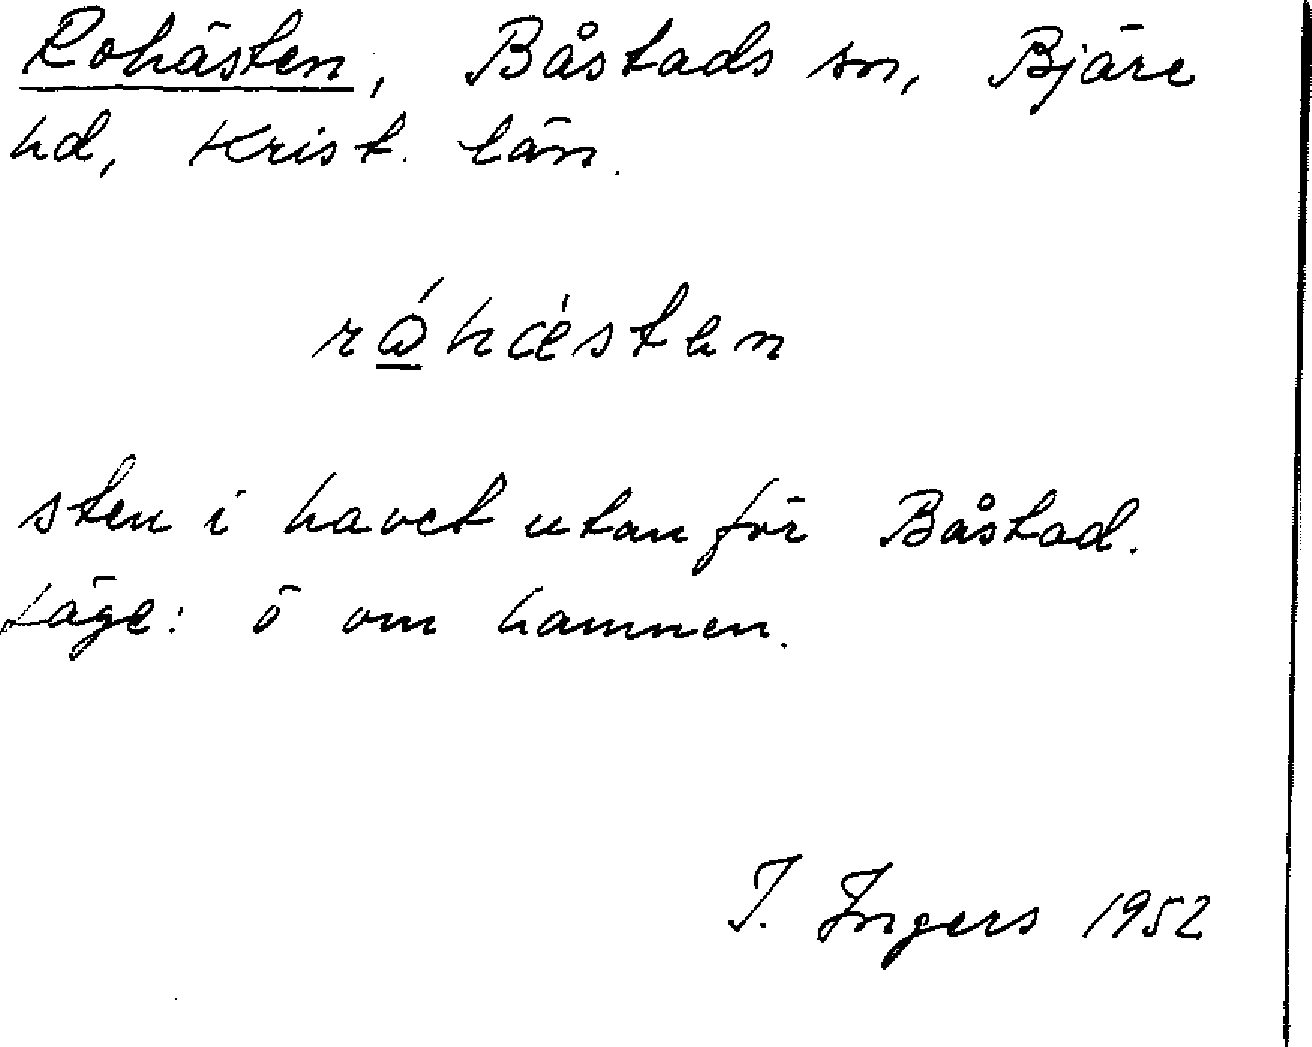 Rohästen, Båstads sn, Bjäre
hd, Krist. län.
sten i havet utanför Båstad.
Läge: ö om hamnen.
I. Ingers 1952